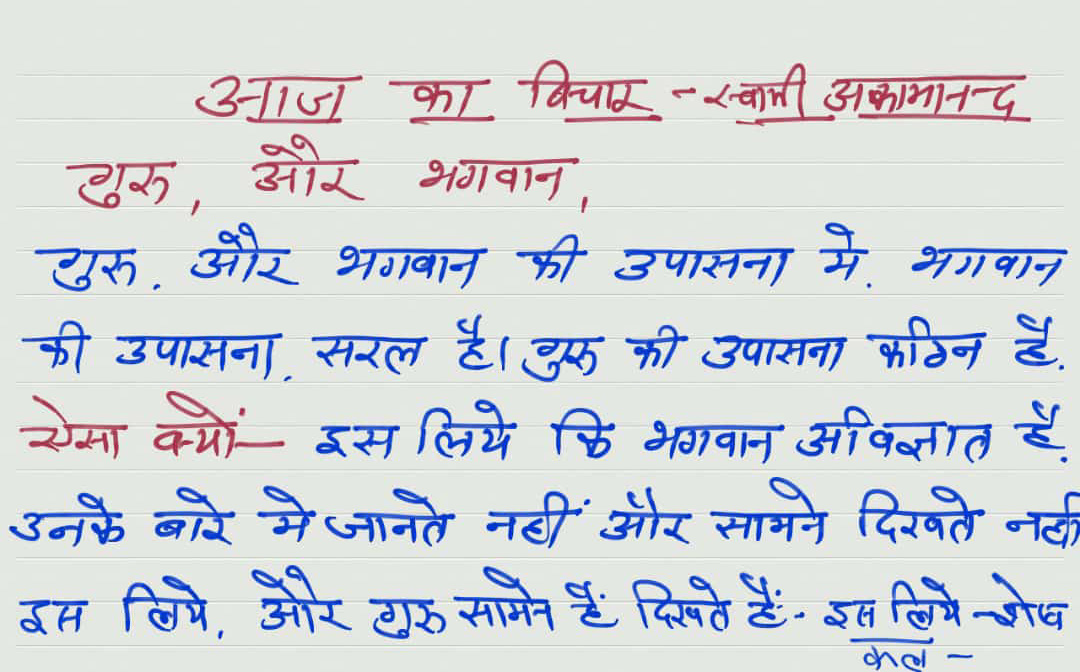 आज का विचार - स्वामी अकामानन्द
गुरु, और भगवान,
गुरु. और भगवान की उपासना मे. भगवान
की उपासना. सरल है। गुरु की उपासना कठिन है.
ऐसा क्यों— इस लिये कि भगवान अविज्ञात है.
उनके बारे मे जानते नहीं और सामने दिखते नही
इस लिये, और गुरु सामने हैं दिखते हैं- इस लिये -शेष
कल -